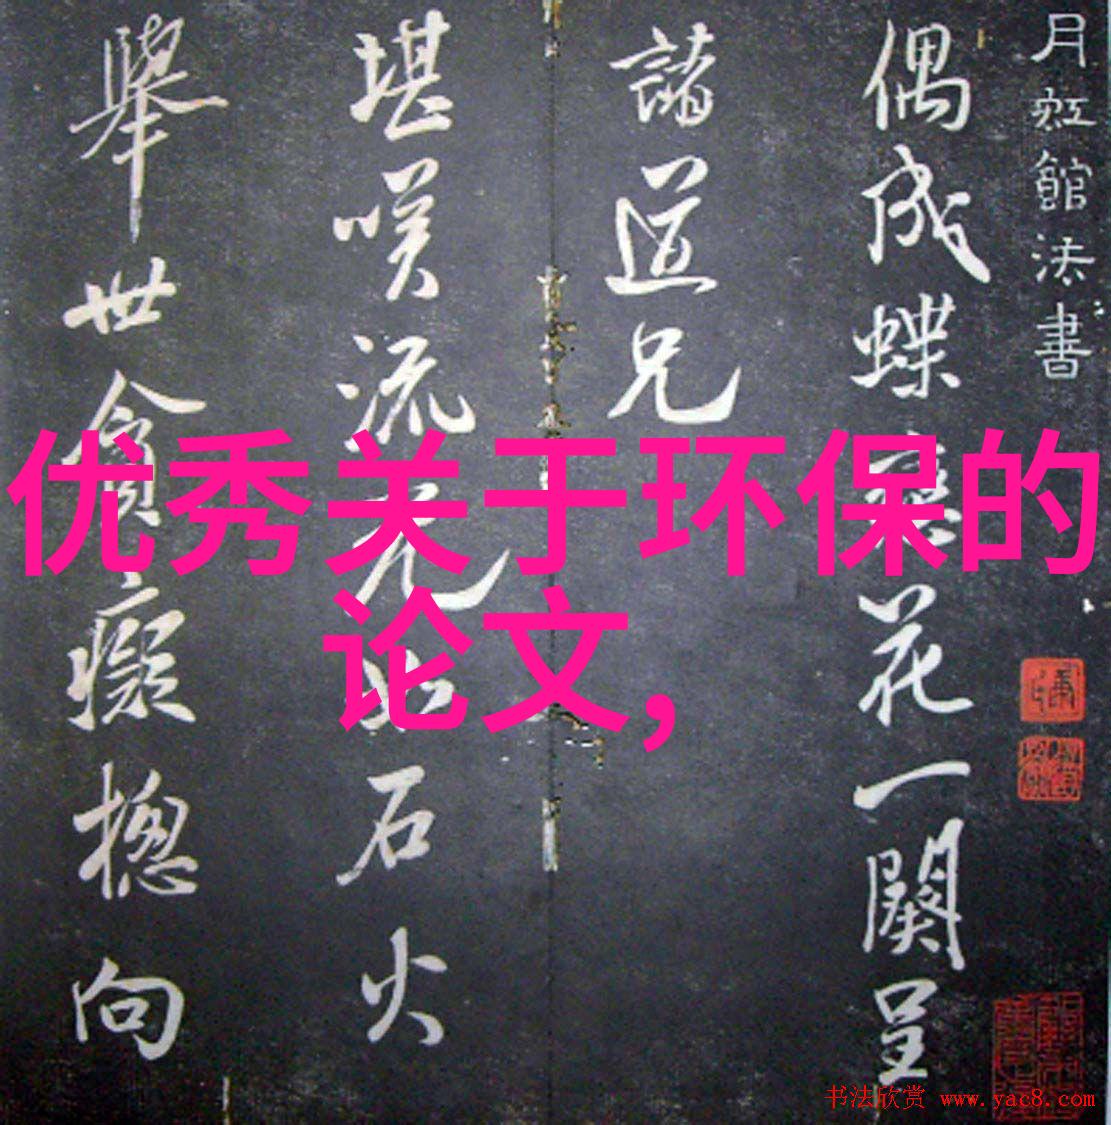 月虹館法書
偶成蝶戀花一闋呈
諸道兄
堪嘆流光如石火
舉世貪癡摠向
优秀关于环保的
论文,
书法欣赏 www.yac8.com